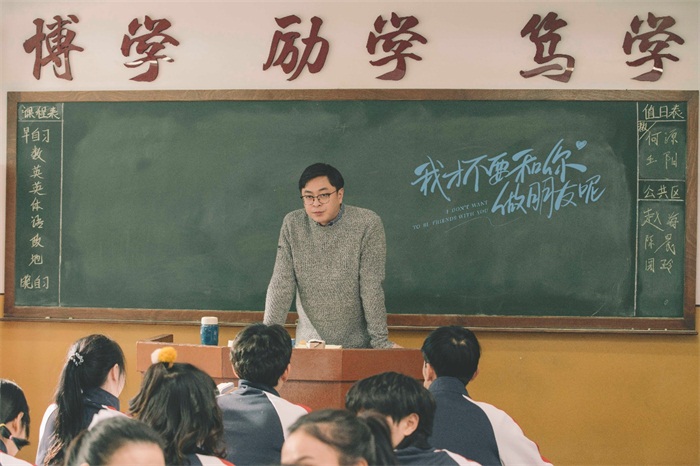 博学 励学 笃学
课程表
早自习
数
英
英
乐
语
政
地
晚自习
我才不要和你
做朋友呢
I DON'T WANT
TO BE FRIENDS WITH YOU
值日表
何源
公共区
陈晨